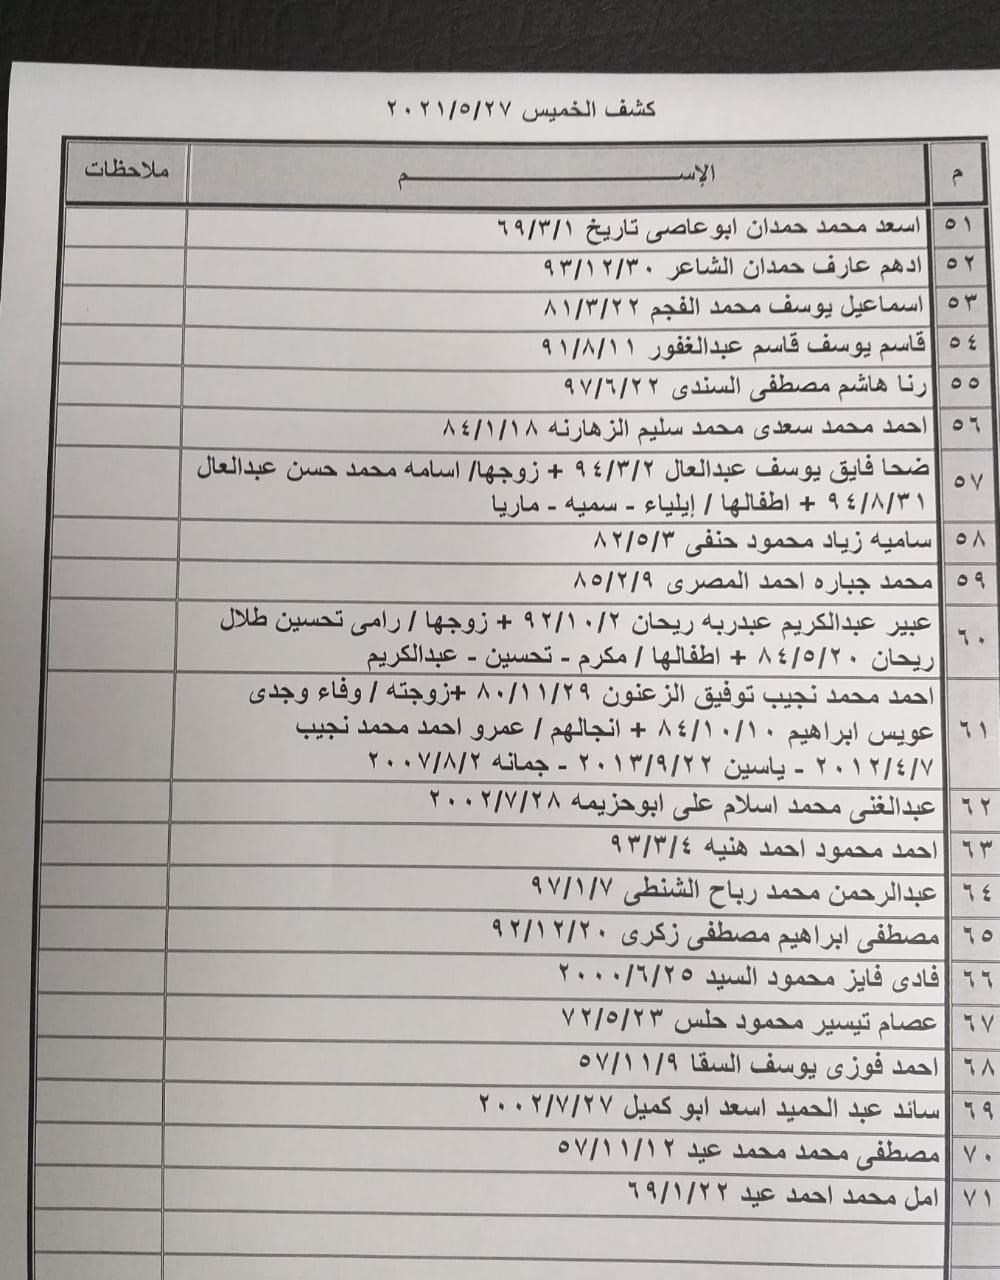 كشف الخميس ٢٠٢١/٥/٢٧
م الإســـــــــــــــــــم ملاحظات
٥١ اسعد محمد حمدان ابوعاصى تاريخ ٦٩/٣/١
٥٢ ادهم عارف حمدان الشاعر ٩٣/١٢/٣٠
٥٣ اسماعيل يوسف محمد الفجم ٨١/٣/٢٢
٥٤ قاسم يوسف قاسم عبدالغفور ٩١/٨/١١
٥٥ رنا هاشم مصطفى السندى ٩٧/٦/٢٢
٥٦ احمد محمد سعدى محمد سليم الزهارنه ٨٤/١/١٨
٥٧ ضحا فايق يوسف عبدالعال ٩٤/٣/٢ + زوجها/ اسامه محمد حسن عبدالعال
٩٤/٨/٣١ + اطفالها / إيلياء - سميه - ماريا
٥٨ ساميه زياد محمود حنفى ٨٢/٥/٣
٥٩ محمد جباره احمد المصرى ٨٥/٢/٩
٦٠ عبير عبدالكريم عبدربه ريحان ٩٢/١٠/٢ + زوجها / رامى تحسين طلال
ريحان ٨٤/٥/٢٠ + اطفالها / مكرم - تحسين - عبدالكريم
٦١ احمد محمد نجيب توفيق الزعنون ٨٠/١١/٢٩ +زوجته / وفاء وجدى
عويس ابراهيم ٨٤/١٠/١٠ + انجالهم / عمرو احمد محمد نجيب
٢٠١٢/٤/٧ - ياسين ٢٠١٣/٩/٢٢ - جمانه ٢٠٠٧/٨/٢
٦٢ عبدالغنى محمد اسلام على ابوحزيمه ٢٠٠٢/٧/٢٨
٦٣ احمد محمود احمد هنيه ٩٣/٣/٤
٦٤ عبدالرحمن محمد رباح الشنطى ٩٧/١/٧
٦٥ مصطفى ابراهيم مصطفى زكرى ٩٢/١٢/٢٠
٦٦ فادى فايز محمود السيد ٢٠٠٠/٦/٢٥
٦٧ عصام تيسير محمود حلس ٧٢/٥/٢٣
٦٨ احمد فوزى يوسف السقا ٥٧/١١/٩
٦٩ سائد عبد الحميد اسعد ابو كميل ٢٠٠٢/٧/٢٧
٧٠ مصطفى محمد محمد عيد ٥٧/١١/١٢
٧١ امل محمد احمد عيد ٦٩/١/٢٢